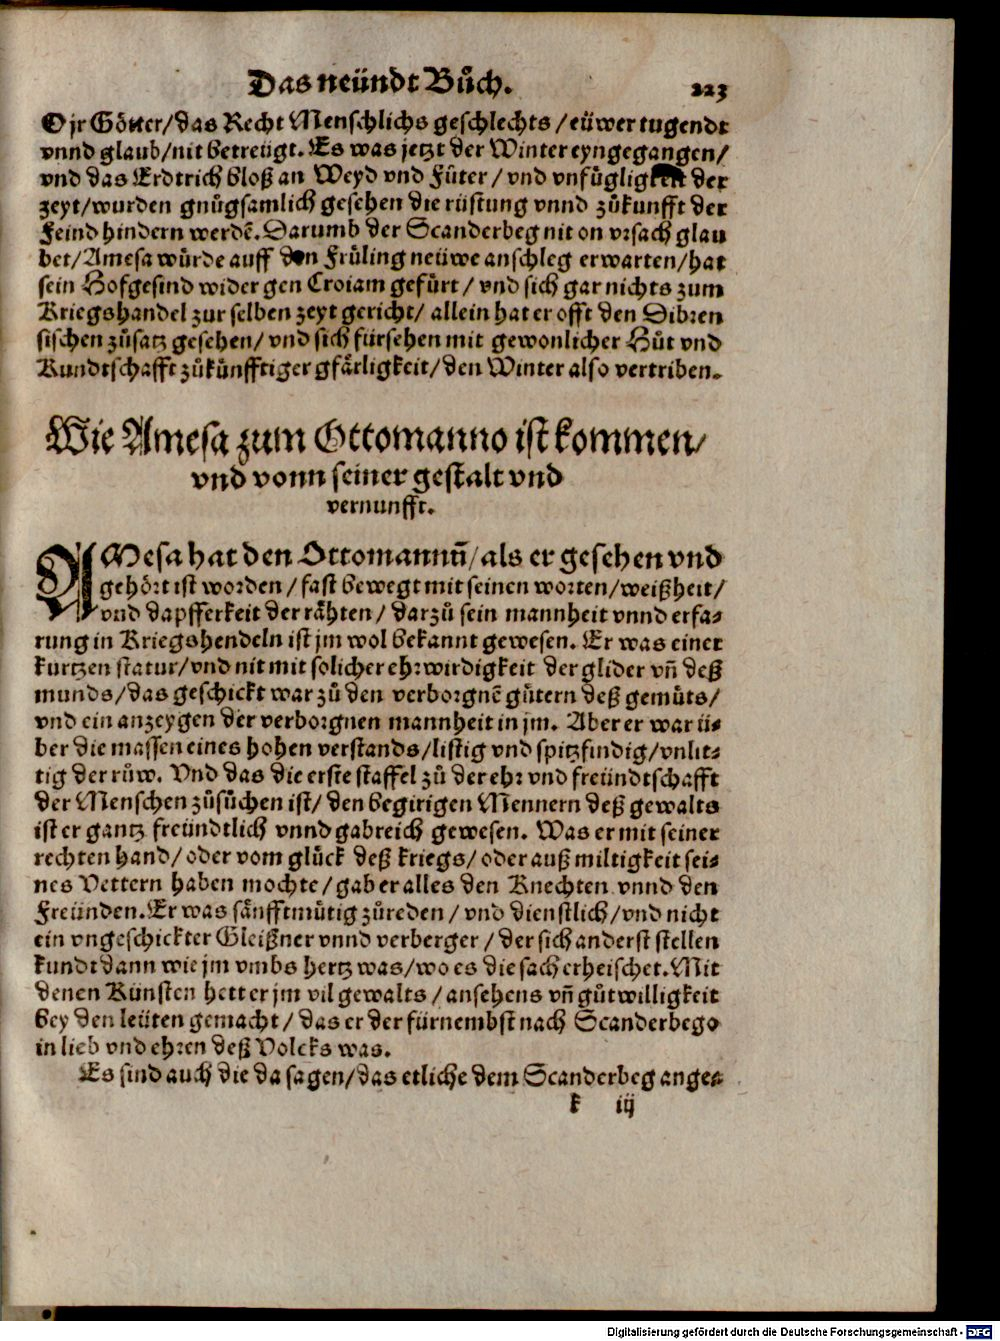 Das neündt Bůch. 223
O jr Götter/das Recht Menschlichs geschlechts/eüwer tugendt
vnnd glaub/nit betreügt. Es was jetzt der Winter eyngegangen/
vnd das Erdtrich bloß an Weyd vnd Fůter/vnd vnfůgligkeit der
zeyt/wurden gnůgsamlich gesehen die rüstung vnnd zůkunfft der
Feind hindern werdẽ. Darumb der Scanderbeg nit on vrsach glau
bet/Amesa würde auff den Früling neüwe anschleg erwarten/hat
sein Hofgesind wider gen Croiam gefürt/vnd sich gar nichts zum
Kriegshandel zur selben zeyt gericht/allein hat er offt den Dibren
sischen zůsatz gesehen/vnd sich fürsehen mit gewonlicher Hůt vnd
Kundtschafft zůkünfftiger gfärligkeit/den Winter also vertriben.
Wie Amesa zum Ottomanno ist kommen/
vnd vonn seiner gestalt vnd
vernunfft.
AMesa hat den Ottomannũ/als er gesehen vnd
gehört ist worden/fast bewegt mit seinen worten/weißheit/
vnd dapfferkeit der rähten/darzů sein mannheit vnnd erfa⸗
rung in Kriegshendeln ist jm wol bekannt gewesen. Er was einer
kurtzen statur/vnd nit mit solicher ehrwirdigkeit der glider vñ deß
munds/das geschickt war zů den verborgnẽ gůtern deß gemůts/
vnd ein anzeygen der verborgnen mannheit in jm. Aber er war ü⸗
ber die massen eines hohen verstands/listig vnd spitzfindig/vnlit⸗
tig der růw. Vnd das die erste staffel zů der ehr vnd freündtschafft
der Menschen zůsůchen ist/den begirigen Mennern deß gewalts
ist er gantz freündtlich vnnd gabreich gewesen. Was er mit seiner
rechten hand/oder vom glück deß kriegs/oder auß miltigkeit sei⸗
nes Vettern haben mochte/gab er alles den Knechten vnnd den
Freünden. Er was sänfftmůtig zůreden/vnd dienstlich/vnd nicht
ein vngeschickter Gleißner vnnd verberger/der sich anderst stellen
kundt dann wie jm vmbs hertz was/wo es die sach erheischet. Mit
denen Künsten hett er jm vil gewalts/ansehens vñ gůtwilligkeit
bey den leüten gemacht/das er der fürnembst nach Scanderbego
in lieb vnd ehren deß Volcks was.
Es sind auch die da sagen/das etliche dem Scanderbeg ange⸗
k iij
Digitalisierung gefördert durch die Deutsche Forschungsgemeinschaft - DFG